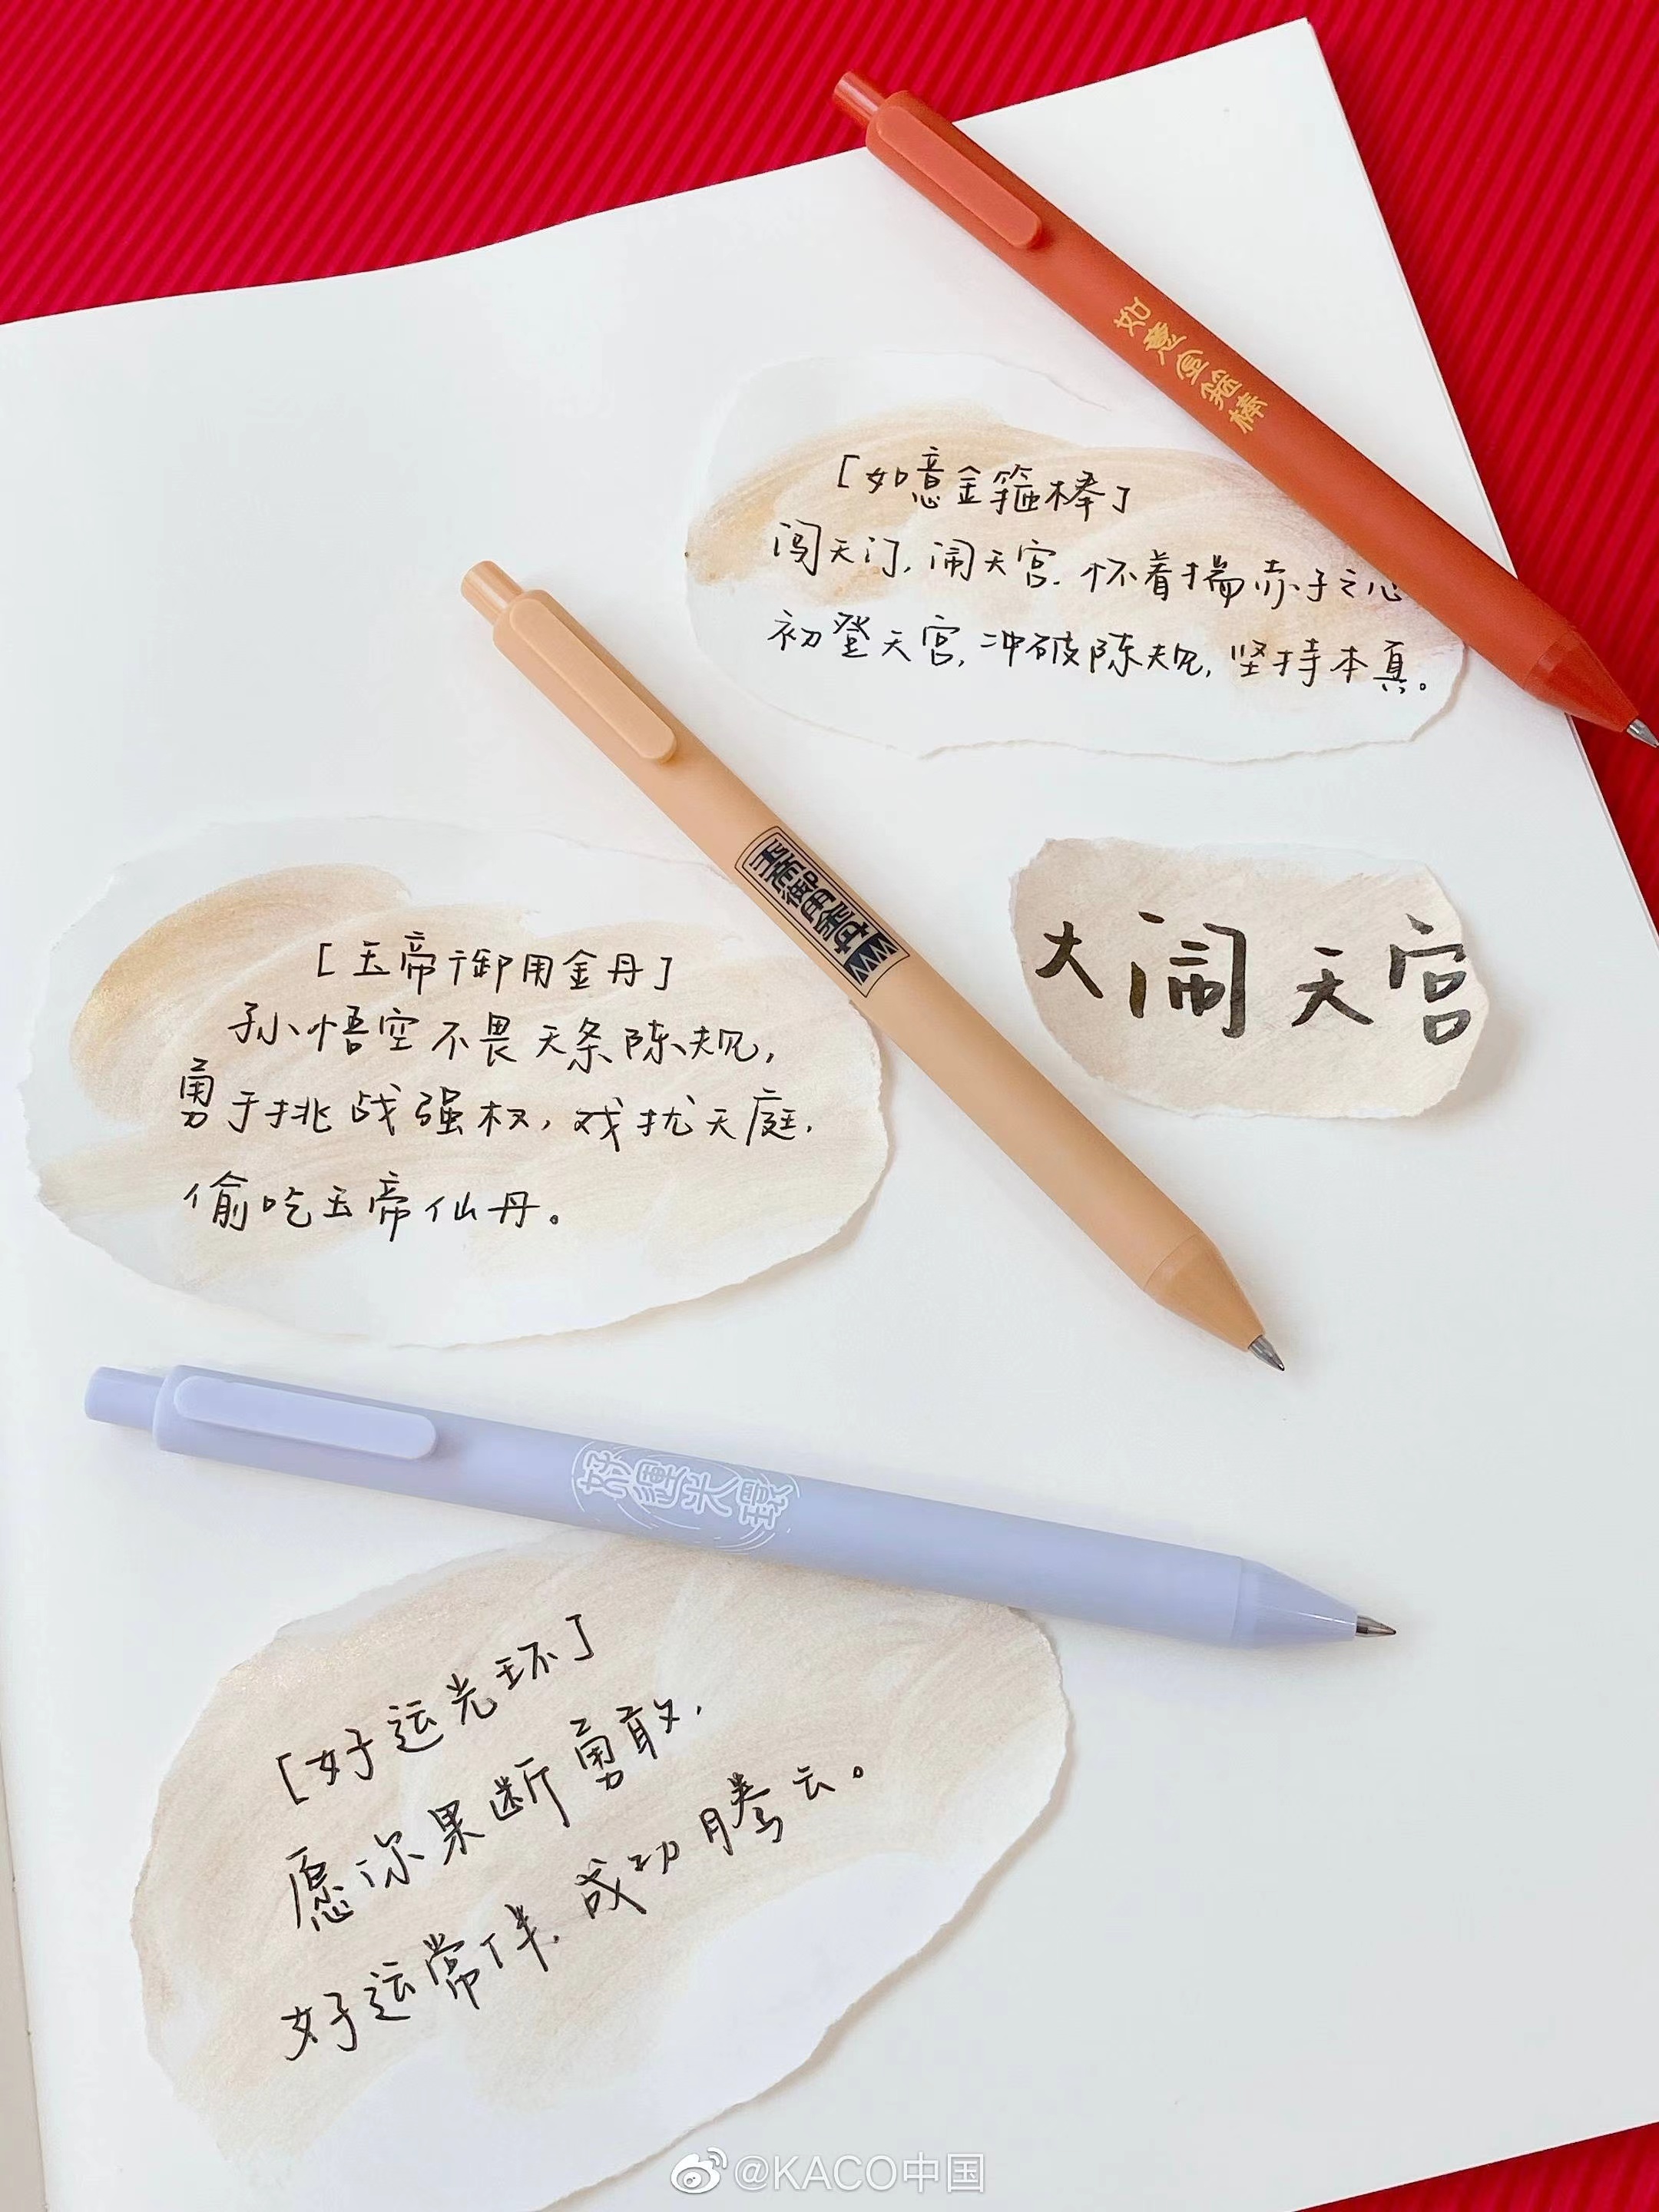 如意金箍棒
[如意金箍棒]
闯天门,闹天宫.怀着揣赤子之心
初登天宫,冲破陈规,坚持本真。
玉帝御用金丹
大闹天宫
[玉帝御用金丹]
孙悟空不畏天条陈规,
勇于挑战强权,戏扰天庭.
偷吃玉帝仙丹。
[好运光环]
愿你果断勇敢.
好运常伴.成功腾云。
@KACO中国